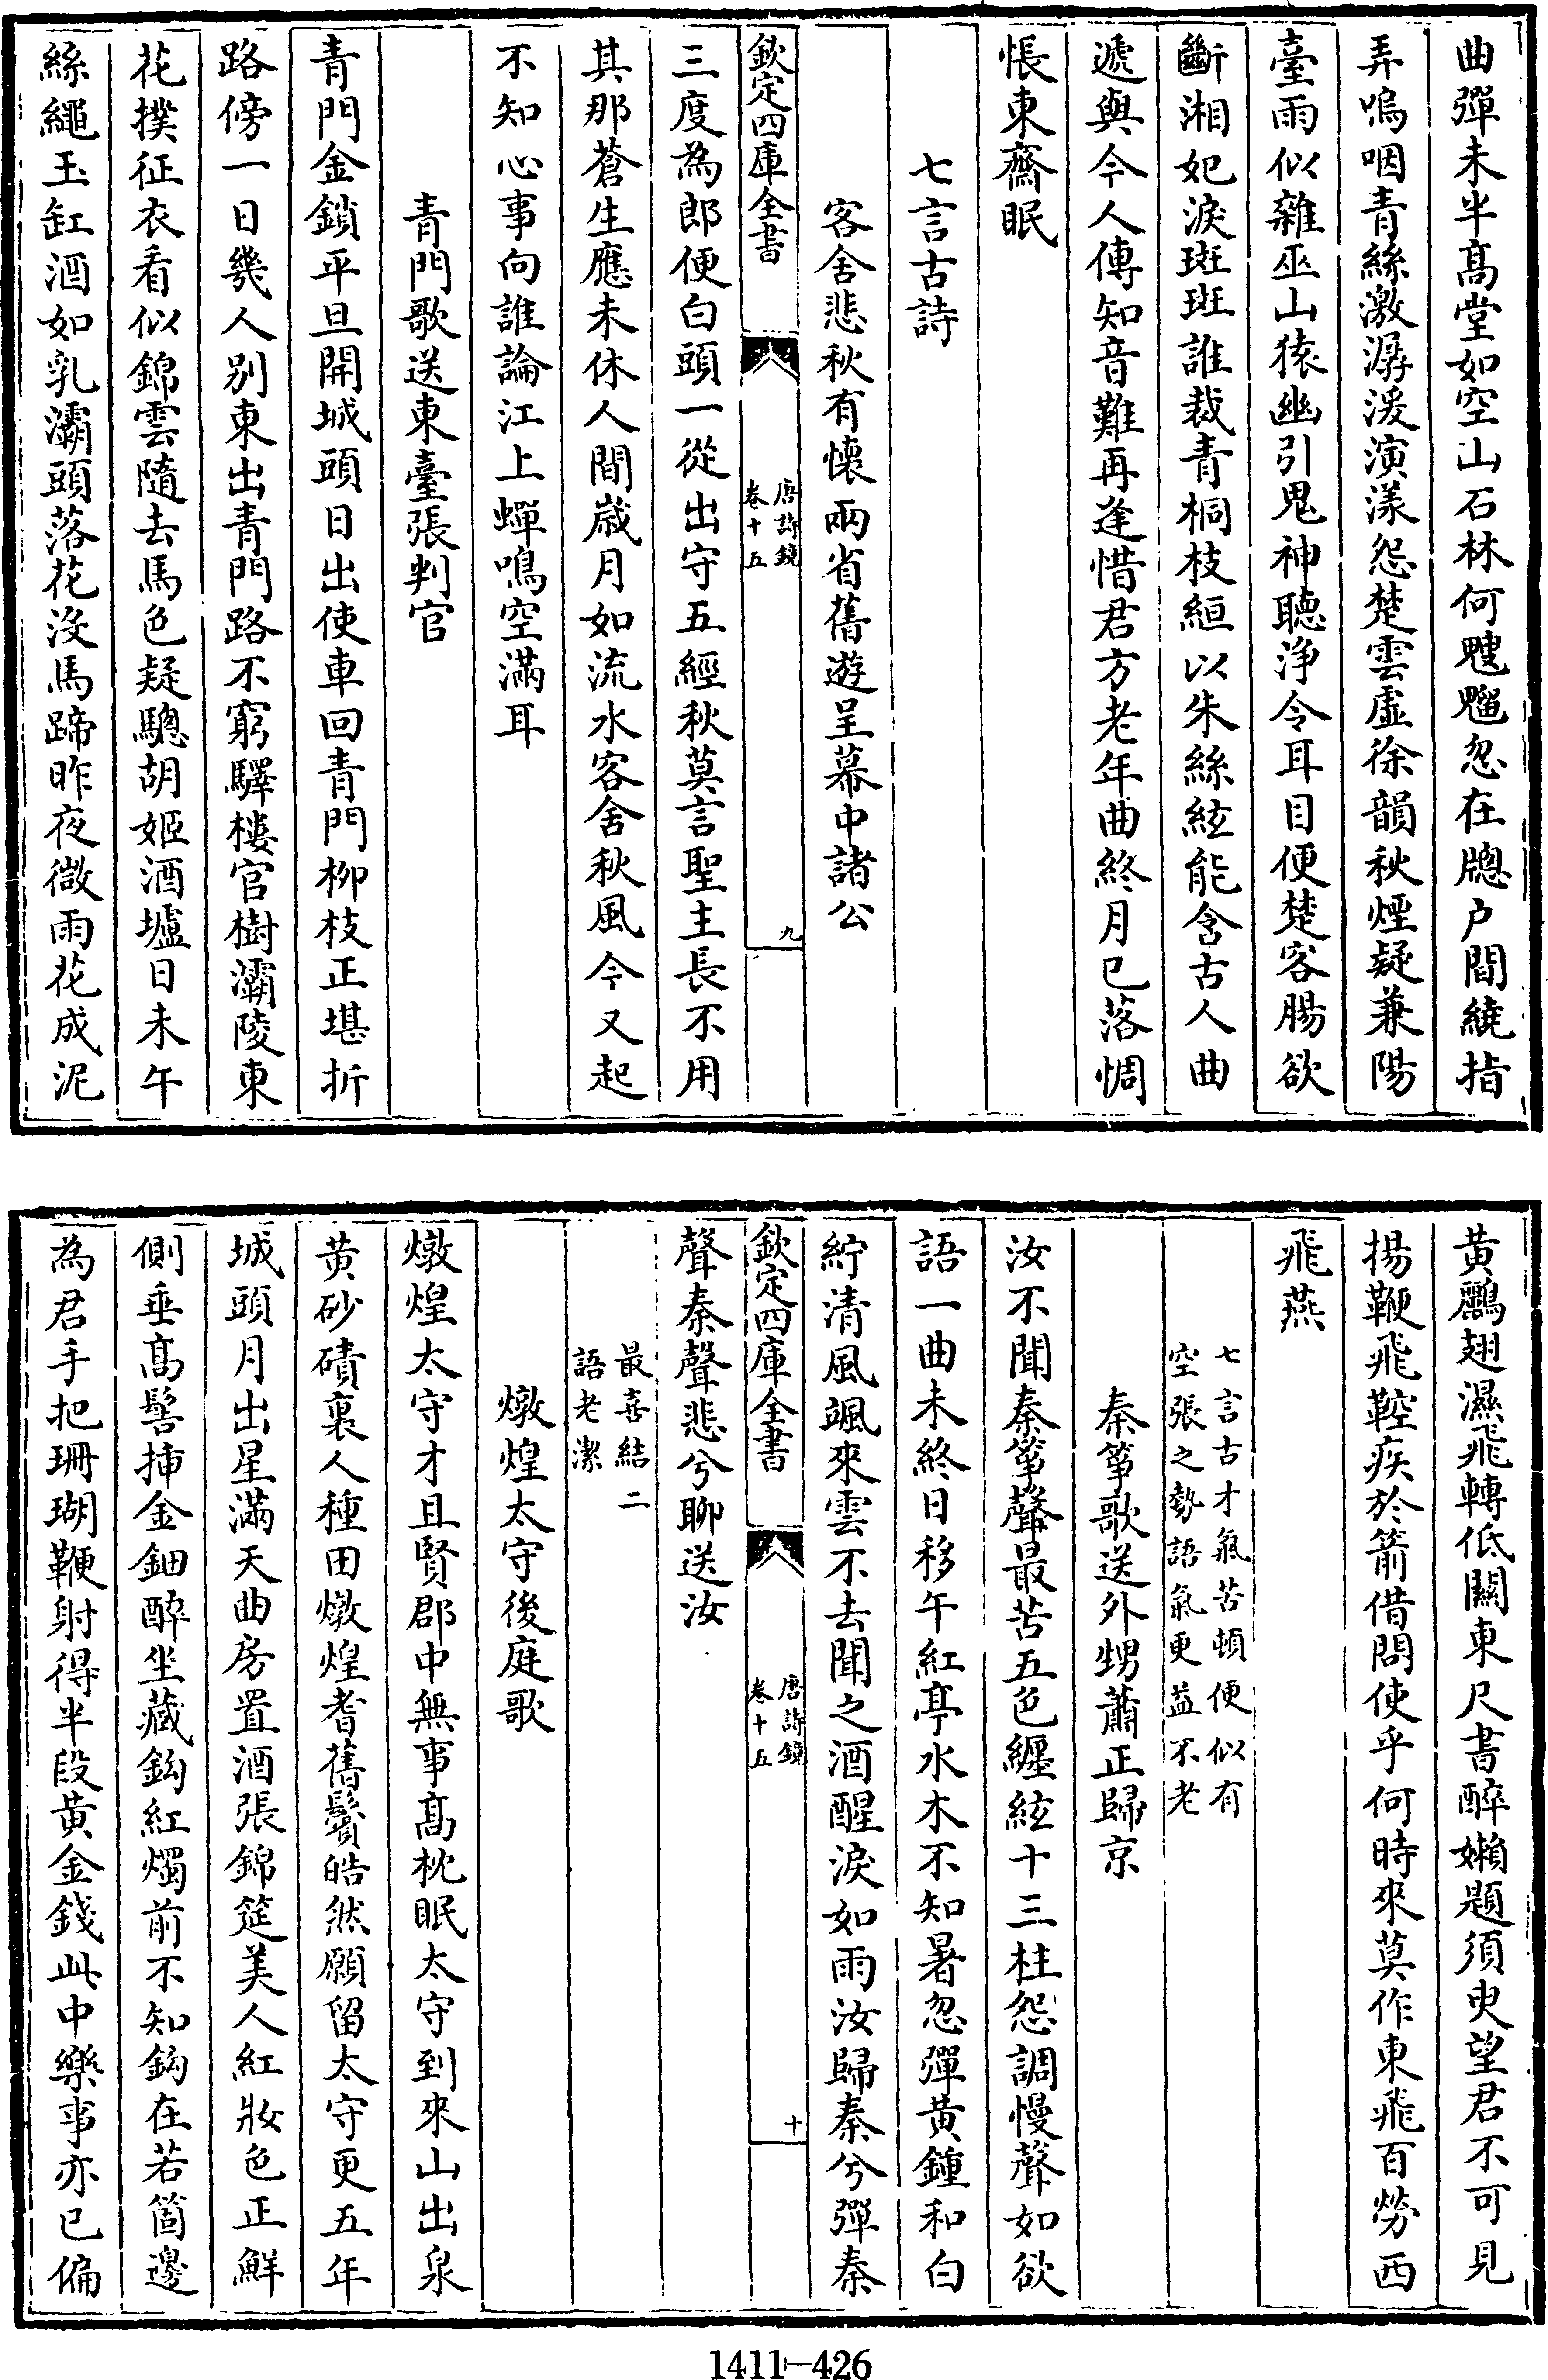 曲彈未半髙堂如空山石林何颼飀忽在牕户間繞指
弄嗚咽青絲激潺湲演漾怨楚雲虛徐韻秋煙疑兼陽
臺雨似雜巫山猿幽引鬼神聽浄令耳目便楚客腸欲
斷湘妃淚斑斑誰裁青桐枝絙以朱絲絃能含古人曲
遞與今人傳知音難再逢惜君方老年曲終月已落惆
悵東齋眠
七言古詩
客舍悲秋有懷兩省舊遊呈幕中諸公
欽定四庫全書
唐詩鏡
卷十五
九
三度為郎便白頭一從出守五經秋莫言聖主長不用
其那蒼生應未休人間嵗月如流水客舍秋風今又起
不知心事向誰論江上蟬鳴空滿耳
青門歌送東臺張判官
青門金鎖平旦開城頭日出使車回青門柳枝正堪折
路傍一日幾人别東出青門路不窮驛樓官樹灞陵東
花撲征衣看似錦雲隨去馬色疑驄胡姬酒壚日未午
絲繩玉缸酒如乳灞頭落花沒馬蹄昨夜微雨花成泥
黄鸝翅濕飛轉低關東尺書醉嬾題須臾望君不可見
揚鞭飛鞚疾於箭借問使乎何時來莫作東飛百勞西
飛燕
七言古才氣苦頓便似有
空張之勢語氣更益不老
秦箏歌送外甥蕭正歸京
汝不聞秦箏聲最苦五色纒絃十三柱怨調慢聲如欲
語一曲未終日移午紅亭水木不知暑忽彈黄鍾和白
紵清風颯來雲不去聞之酒醒淚如雨汝歸秦兮彈秦
欽定四庫全書
唐詩鏡
卷十五
十
聲秦聲悲兮聊送汝
最喜結二
語老潔
燉煌太守後庭歌
燉煌太守才且賢郡中無事髙枕眠太守到來山出泉
黄砂磧裏人種田燉煌耆舊鬢皓然願留太守更五年
城頭月出星滿天曲房置酒張錦筵美人紅妝色正鮮
側垂髙髻揷金鈿醉坐藏鈎紅燭前不知鈎在若箇邊
為君手把珊瑚鞭射得半段黄金錢此中樂事亦已偏
1411—426